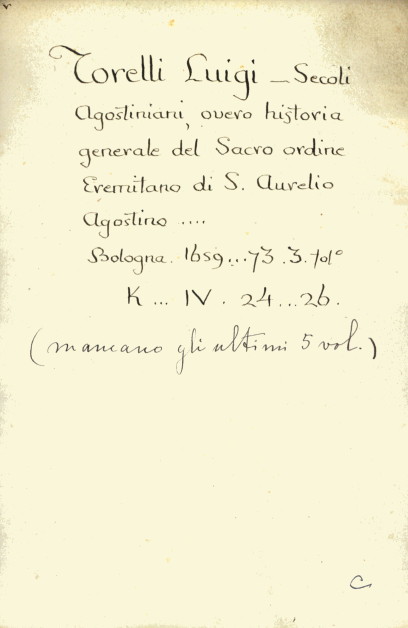 Torelli Luigi — Secoli
Agostiniani, overo historia
generale del Sacro ordine
Eremitano di S. Aurelio
Agostino ....
Bologna. 1659...73. 3. fol°
K ... IV. 24...26.
(mancano gli ultimi 5 vol.)
C